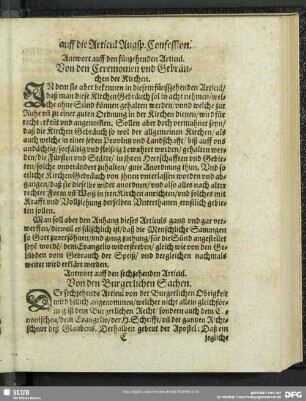 auff die Articul Augsp. Confession.
Antwort auff den fünzehenden Articul.
Von den Ceremonien vnd Gebräu-
chen der Kirchen.
IN dem sie aber bekennen in diesem fünffzehenden Articul/
daß man dieß Kirchen Gebräuch sol in acht nehmen/ wel-
che ohne Sünd können gehalten werden/ vnnd welche zur
Ruhe vñ zu einer guten Ordnung in der Kirchen dienen/ wird für
recht erkeñt vnd angenommen. Sollen aber doch vermahnet seyn/
daß die Kirchen Gebräuch so wol der allgemeinen Kirchen/ als
auch welche in einer jeden Provintz vnd Landschafft/ biß auff vns
andächtig/ vnd fleissig bewahret worden/ gehalten werden/
die Fürsten vnd Stätte/ in jhren Herrschafften vnd Gebie-
ten/ solche vnverändert zuhalten/ gute Anordnung thun. Vnd so
etliche Kirchen Gebräuch von jhnen vnterlassen worden vnd ab-
gangen/ daß sie dieselbe wider anordnen/ vnd alles nach alter
rechter Form vñ Weiß in jren Kirchen anrichten/ vnd solches mit
Krafft vnd Vollziehung derselben Vnterthanen ernstlich gebie-
ten sollen.
Man soll aber den Anhang dieses Articuls gantz vnd gar ver-
werffen/ dieweil es fälschlich ist/ daß die Menschliche Satzungen
so Gott zuversöhnen/ vnd gnug zuthun/ für die Sünd angestellet
seynd worden/ dem Evangelio widerstreben/ gleich wie von den Ge-
lübden vom Gebrauch der Speiß/ vnd dergleichen nachmals
weiter wird erkläret werden.
Antwort auff den sechzehenden Articul.
Von den Burgerlichen Sachen.
Der sechzehende Articul von der Burgerlichen Obrigkeit
wird billich angenommen/ welcher nicht allein gleichför-
mig ist dem Burgerlichen Recht/ sondern auch dem C-
nonischen/ dem Evangelio/ der H. Schrifft/ vñ der gantzen Richt-
schnur deß Glaubens. Derhalben gebeut der Apostel: Daß ein
C jegliche
SLUB